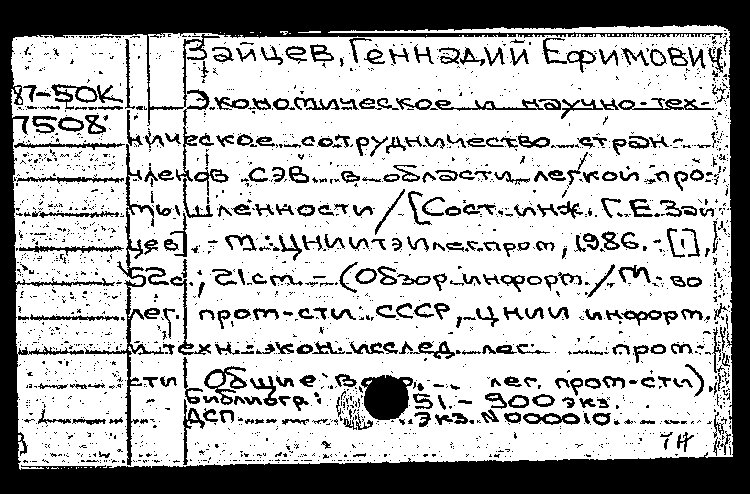 Зайцев, Геннадий Ефимович
87-50К
7508
Экономическое и научно-тех-
ническое сотрудничество стран-
членов СЭВ в области легкой про-
мышленности / [Сост. инж. Г.Е. Зай
цев]. - М.: ЦНИИТЭИлегпром, 1986. - [1],
52с.; 21см. - (Обзор. информ. / М-во
лег. пром-сти СССР, ЦНИИ информ.
и техн.-экон. исслед. лег. пром-
сти Общие лег. пром-сти).
Библиогр.: 51. - 900 экз.
ДСП. Экз. N 000010.